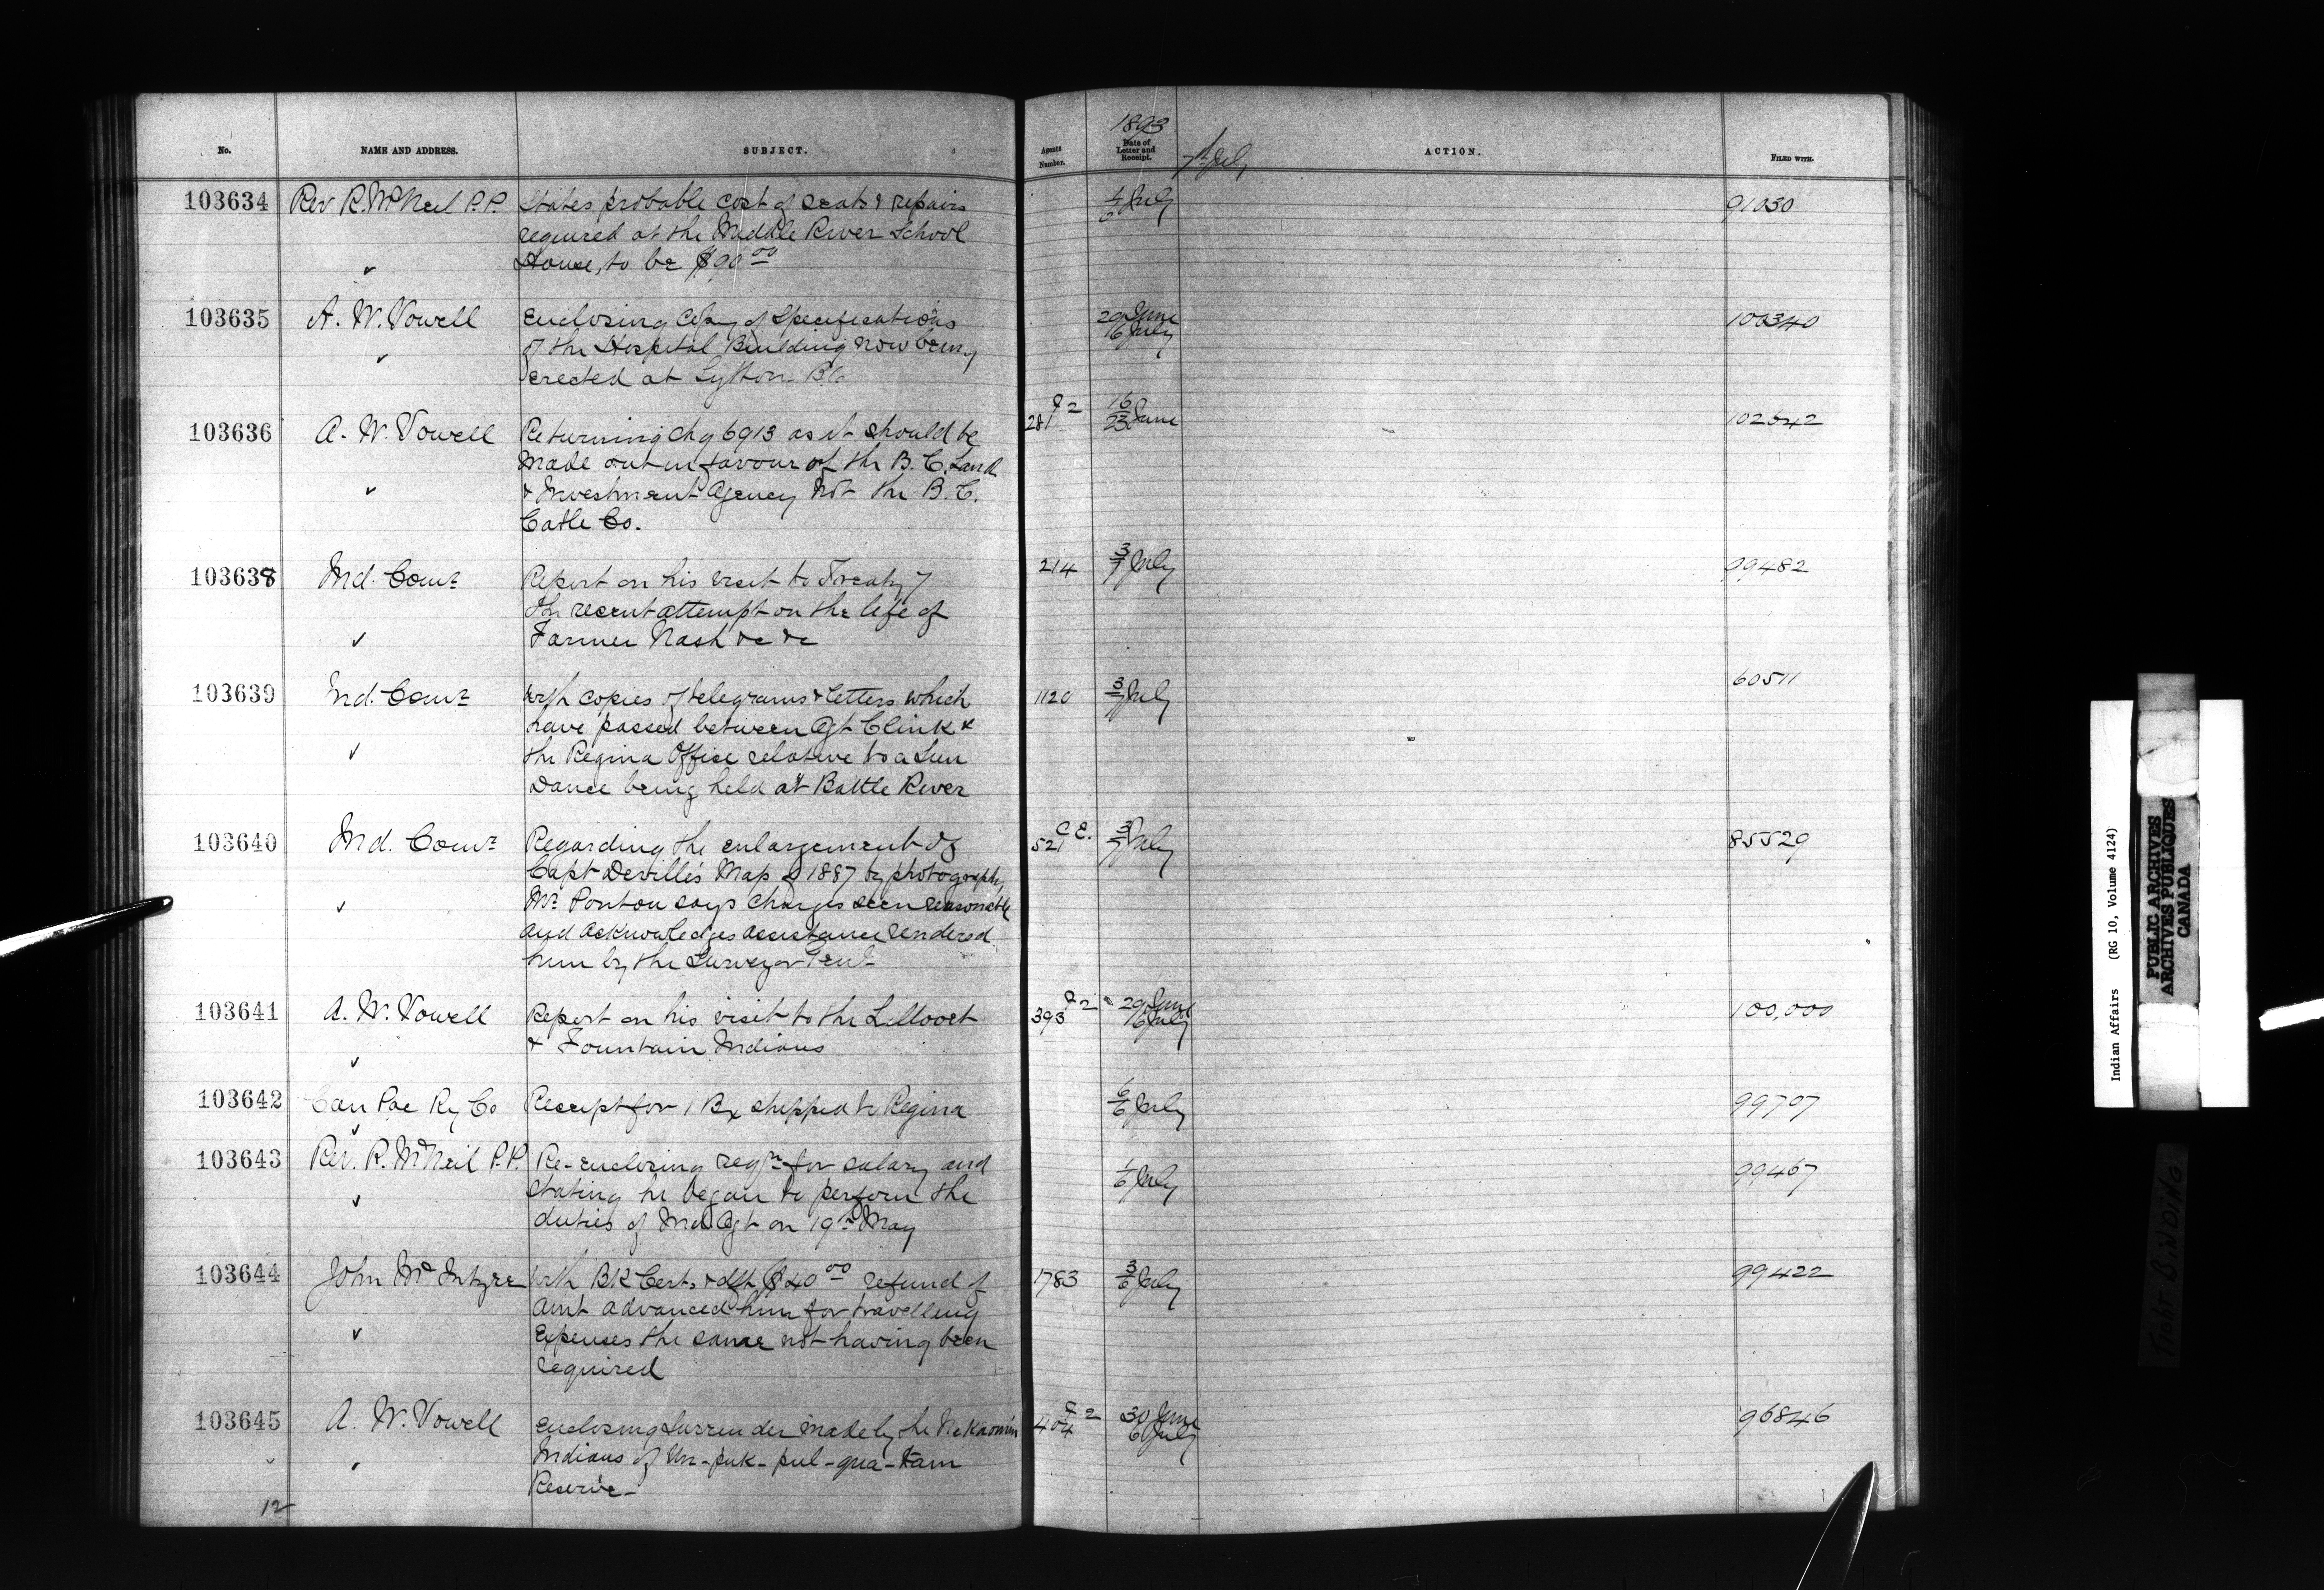 No. NAME AND ADDRESS. SUBJECT. Agents Number. 1893 Date of Letter and Receipt. 7th July ACTION. FILED WITH.
103634 Rev R. McNeil P.P. States probable cost of seats & repairs 1/6 July 91030
required at the Middle River School
House, to be $90 00
103635 A. W. Vowell Enclosing Copy of Specifications 29 June 6 July 100340
of the Hospital Building now being
erected at Lytton BC
103636 A. W. Vowell Returning Chq 6913 as it should be 281 16/23 June 102542
made out in favour of the B. C. Land
& Investment Agency not the B. C.
Catle Co.
103638 Ind. Comr Report on his visit to Treaty 7 214 3/7 July 99482
The recent attempt on the life of
Farmer Nash &c &c
103639 Ind. Comr With copies of telegrams & letters which 1120 3/7 July 60511
have passed between Agt Clink &
the Regina Office relative to a Sun
Dance being held at Battle River
103640 Ind. Comr Regarding the enlargement of 521 C E. 3/7 July 85529
Capt Deville's Map of 1887 by photography
Mr Ponton says charges seem reasonable
and acknowledges assistance rendered
him by the Surveyor Genl
103641 A. W. Vowell Report on his visit to the Lillooet 393 29 June 6 July 100,000
& Fountain Indians
103642 Can Pac Ry Co Receipt for 1 Bx shipped to Regina 6/6 July 99707
103643 Rev. R. McNeil P.P. Re-enclosing reqn for salary and 1/6 July 99467
stating he began to perform the
duties of Ind Agt on 19th May
103644 John McIntyre With BK Cert. & dft $40 00 refund of 1783 3/6 July 99422
amt advanced him for travelling
Expenses the same not having been
required
103645 A. W. Vowell enclosing Surrender made by the Nekaomin 404 30 June 6 July 96846
Indians of Un-puk-pul-qua-tam
Reserve-
12
Indian Affairs (RG 10, Volume 4124)
PUBLIC ARCHIVES
ARCHIVES PUBLIQUES
CANADA
TIGHT BINDING